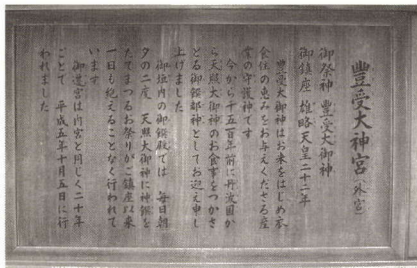 豐受大神宮(外宮)
御祭神 豐受大御神
御鎮座 雄略天皇二十二年
豊受大御神はお米をはじめ衣
食住の恵みをお与えくださる産
業の守護神です
今から千五百年前に丹波国か
ら天照大御神のお食事をつかさ
どる御饌都神としてお迎え申し
上げました
御垣内の御饌殿では 毎日朝
夕の二度 天照大御神に神饌を
たてまつるお祭りがご鎮座以来
一日も絶えることなく行われて
います
御遷宮は内宮と同じく二十年
ごとで 平成五年十月五日に行
われました